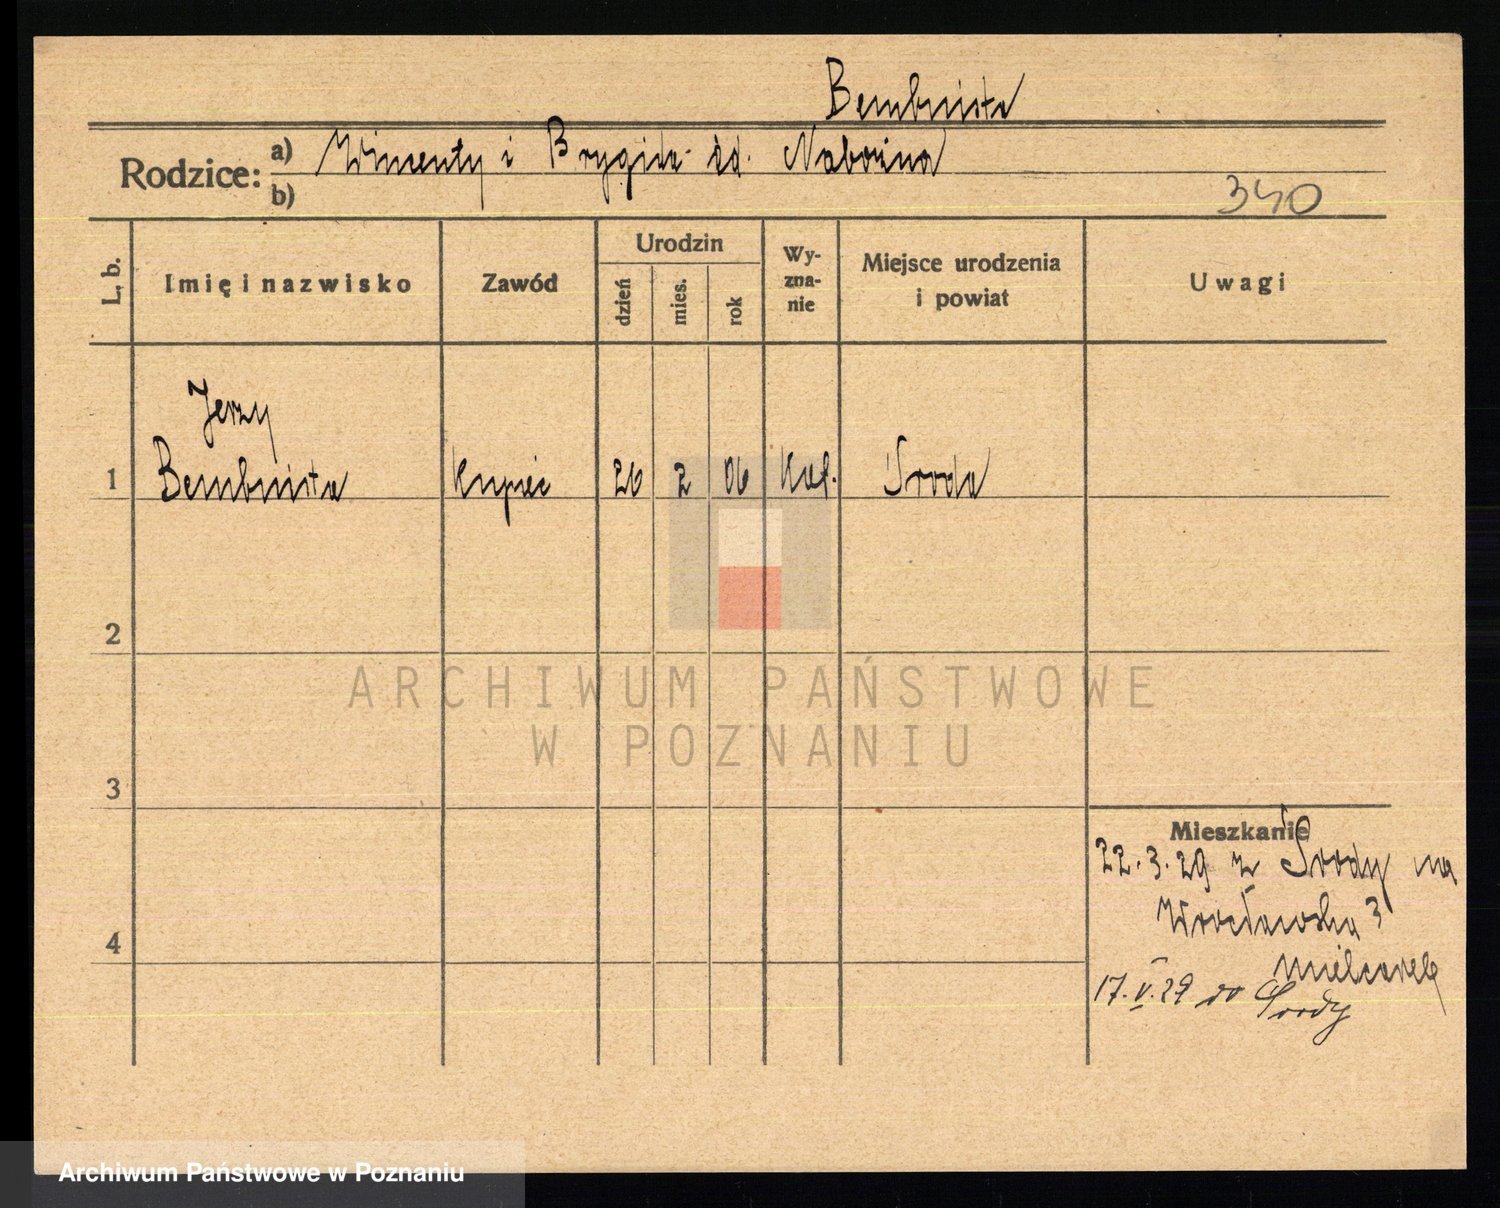 Bembnista
Rodzice: a) Wincenty i Brygida dd.
b)
340
L. b.
Imię i nazwisko
Zawód
Urodzin
dzień
mies.
rok
Wy-
zna-
nie
Miejsce urodzenia
i powiat
Uwagi
Jerzy
1 Bembnista kupiec 26 2 06 Kat. Środa
2
3
4
Mieszkanie
22.3.29 z Środy na
Wrocławska 3
Mielcarek
17.V.29 do Środy
ARCHIWUM PAŃSTWOWE
W POZNANIU
Archiwum Państwowe w Poznaniu